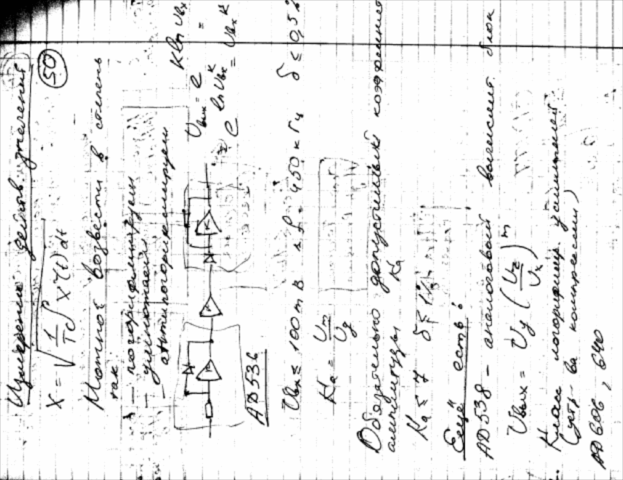 Измерение действ. значений
50
X = √(1/T ∫ X²(t) dt)
Можно возвести в степень
так
— логарифмируем
— умножаем
— антилогарифмируем
Uвых = e^(K ln Uвх) =
= e^(ln Uвх^K) = Uвх^K
AD536
Uвх ≤ 100 mВ Δf = 450 кГц δ ≤ 0,5%
Ka = Um/Uд
допустимый коэффициент
амплитуды Ka
Ka ≤ 7 δ ≤ 1%
Ещё есть:
AD538 – аналоговый вычислит. блок
Uвых = Uy (Uz/Ux)^m
Класс логарифмир. усилителей
(устр-ва компрессии)
AD606, 640